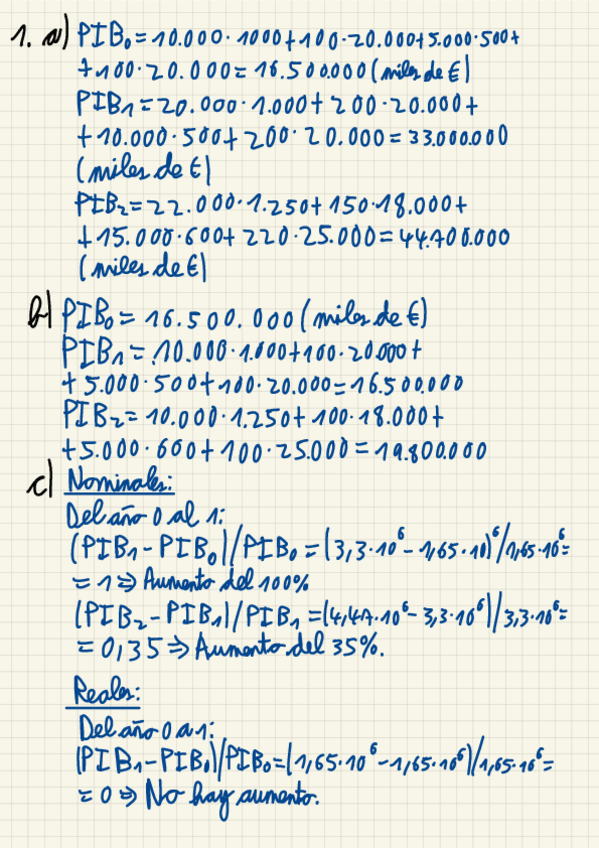 1. a) PIB₀ = 10.000 · 1000 + 100 · 20.000 + 5.000 · 500 +
+ 100 · 20.000 = 16.500.000 (miles de €)
PIB₁ = 20.000 · 1.000 + 200 · 20.000 +
+ 10.000 · 500 + 200 · 20.000 = 33.000.000
(miles de €)
PIB₂ = 22.000 · 1.250 + 150 · 18.000 +
+ 15.000 · 600 + 220 · 25.000 = 44.700.000
(miles de €)
b) PIB₀ = 16.500.000 (miles de €)
PIB₁ = 10.000 · 1.000 + 100 · 20.000 +
+ 5.000 · 500 + 100 · 20.000 = 16.500.000
PIB₂ = 10.000 · 1.250 + 100 · 18.000 +
+ 5.000 · 600 + 100 · 25.000 = 19.800.000
c) Nominales:
Del año 0 al 1:
(PIB₁ - PIB₀) / PIB₀ = (3,3 · 10⁶ - 1,65 · 10)⁶ / 1,65 · 10⁶ =
= 1 ⇒ Aumento del 100%
(PIB₂ - PIB₁) / PIB₁ = (4,47 · 10⁶ - 3,3 · 10⁶) / 3,3 · 10⁶ =
= 0,35 ⇒ Aumento del 35%.
Reales:
Del año 0 a 1:
(PIB₁ - PIB₀) / PIB₀ = (1,65 · 10⁶ - 1,65 · 10⁶) / 1,65 · 10⁶ =
= 0 ⇒ No hay aumento.